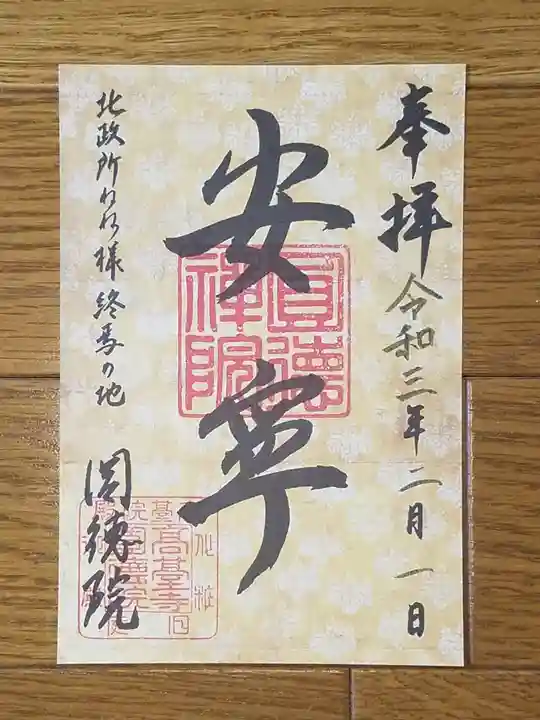 奉拝 令和三年二月一日
安寧
圓徳禅院
北政所ねね様終焉の地
圓徳院
高臺寺